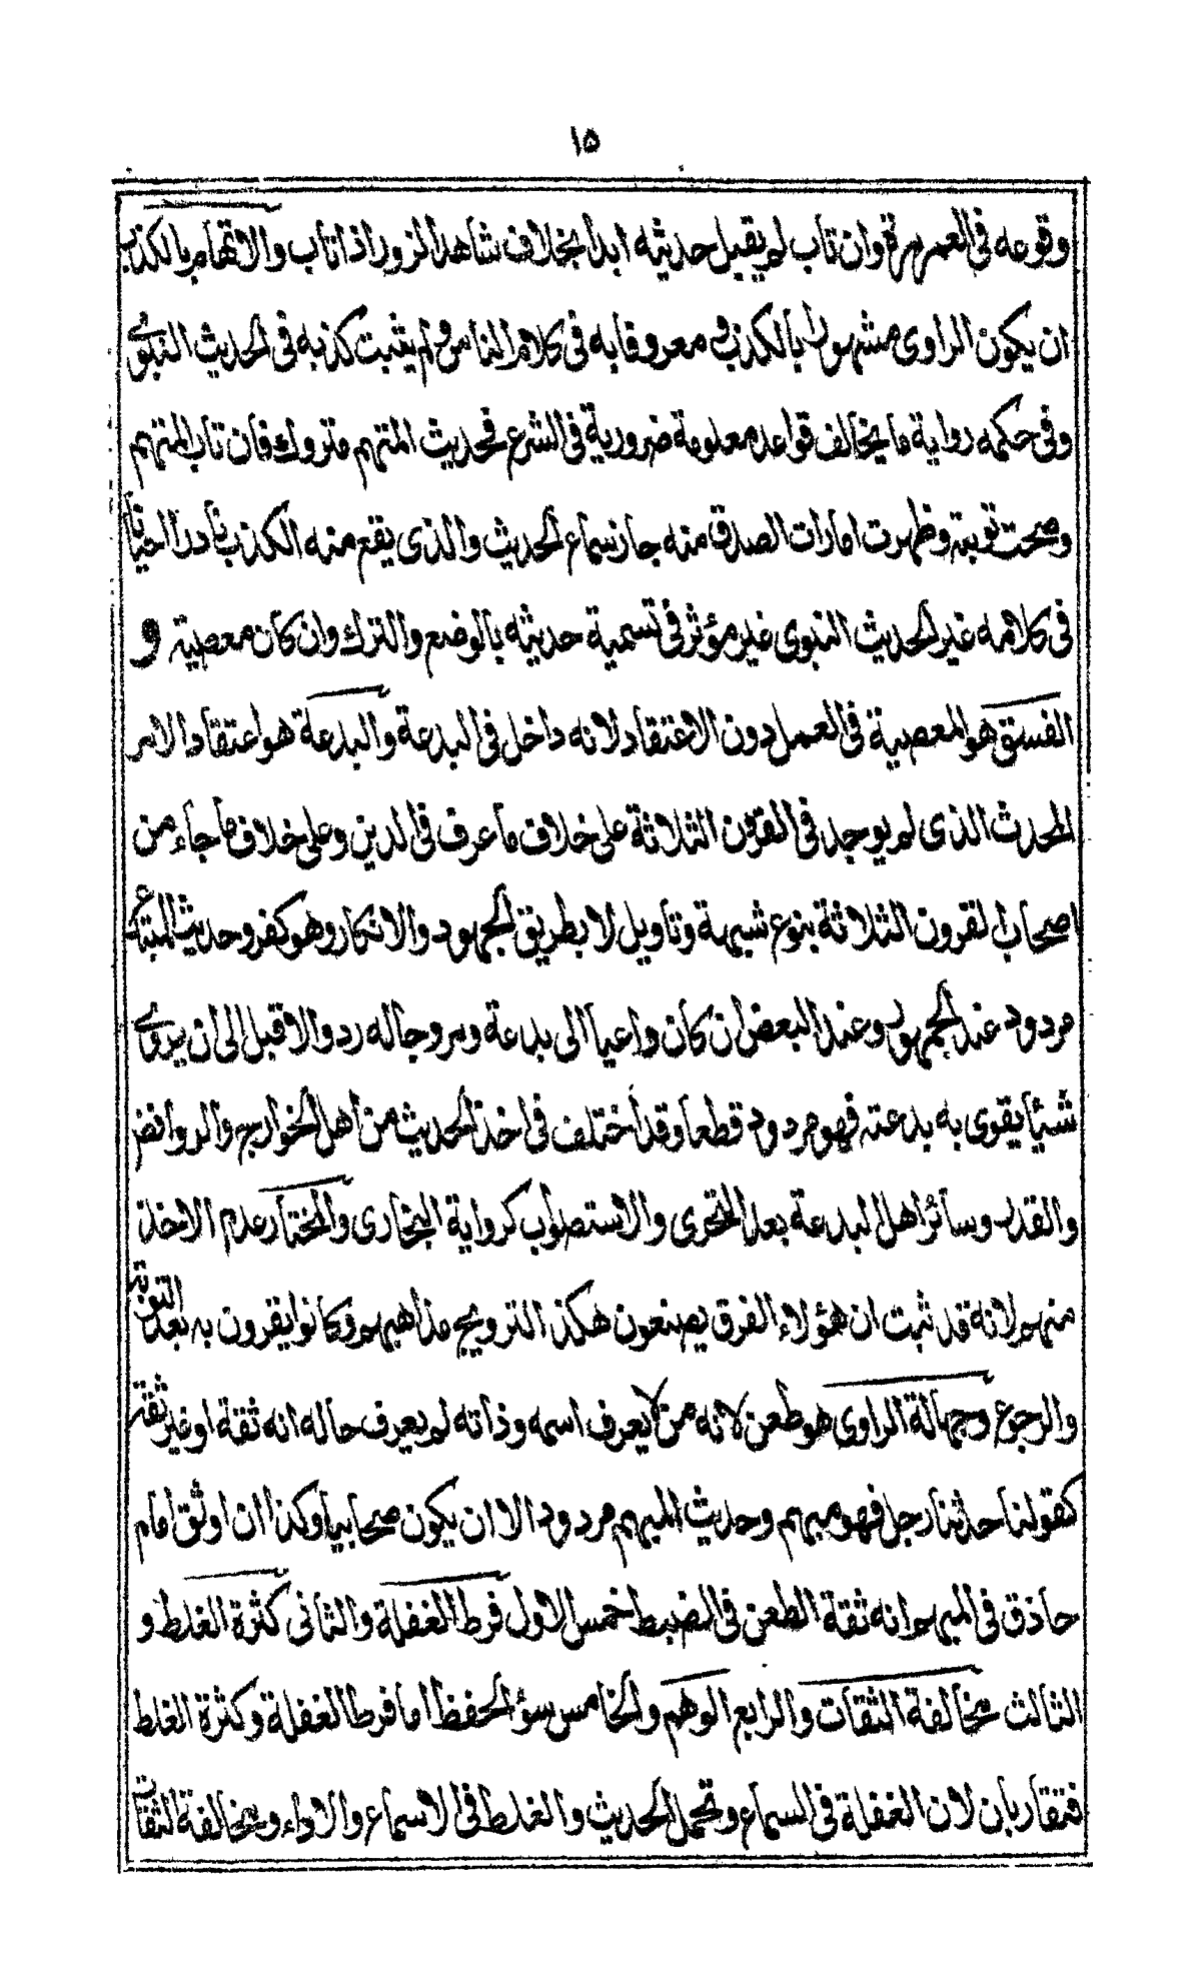 ١٥
وقوعه فى العمر مرة وان تاب لم يقبل حديثه ابدا بخلاف شاهد الزور اذا تاب والاتهام بالكذب
ان يكون الراوى مشهورا بالكذب و معروفا به فى كلام الناس و لم يثبت كذبه فى الحديث النبوى
وفى حكمه رواية ما يخالف قواعد معلومة ضرورية فى الشرع فحديث المتهم متروك فان تاب المتهم
وصحت توبته وظهرت امارات الصدق منه جاز سماع الحديث والذى يقع منه الكذب نادرا احيانا
فى كلامه غير الحديث النبوى غير مؤثر فى تسمية حديثه بالوضع والترك وان كان معصية و
الفسق هو المعصية فى العمل دون الاعتقاد لانه داخل فى البدعة والبدعة هو اعتقاد الامر
المحدث الذى لم يوجد فى القرون الثلاثة على خلاف ما عرف فى الدين وعلى خلاف ما جاء من
اصحاب القرون الثلاثة بنوع شبهة وتاويل لا بطريق الجهود والانكار وهو كفر وحديث المبتدع
مردود عند الجمهور وعند البعض ان كان واعيا الى بدعة ومروجا له رد والا قبل الى ان يروى
شيئا يقوى به بدعته فهو مردود قطعا وقد اختلف فى اخذ الحديث من اهل الخوارج والروافض
والقدر وسائر اهل البدعة بعد التحرى والاستصواب كرواية البخارى والمختار عدم الاخذ
منهم لانه قد ثبت ان هؤلاء الفرق يصنعون هكذا الترويج مذاهبهم وكانوا يقرون به بعد التوبة
والرجوع وجهالة الراوى هو طعن لانه من لا يعرف اسمه وذاته لم يعرف حاله انه ثقة او غير ثقة
كقولنا حدثنا رجل فهو مبهم وحديث المبهم مردود الا ان يكون صحابيا وكذا ان اوثق امام
حاذق فى المبهم وانه ثقة الطعن فى الضبط خمس الاول فرط الغفلة والثانى كثرة الغلط و
الثالث مخالفة الثقات والرابع الوهم والخامس سؤ الحفظ اما فرط الغفلة وكثرة الغلط
فتقاربان لان الغفلة فى السماع وتحمل الحديث والغلط فى الاسماع والاداء ومخالفة الثقات